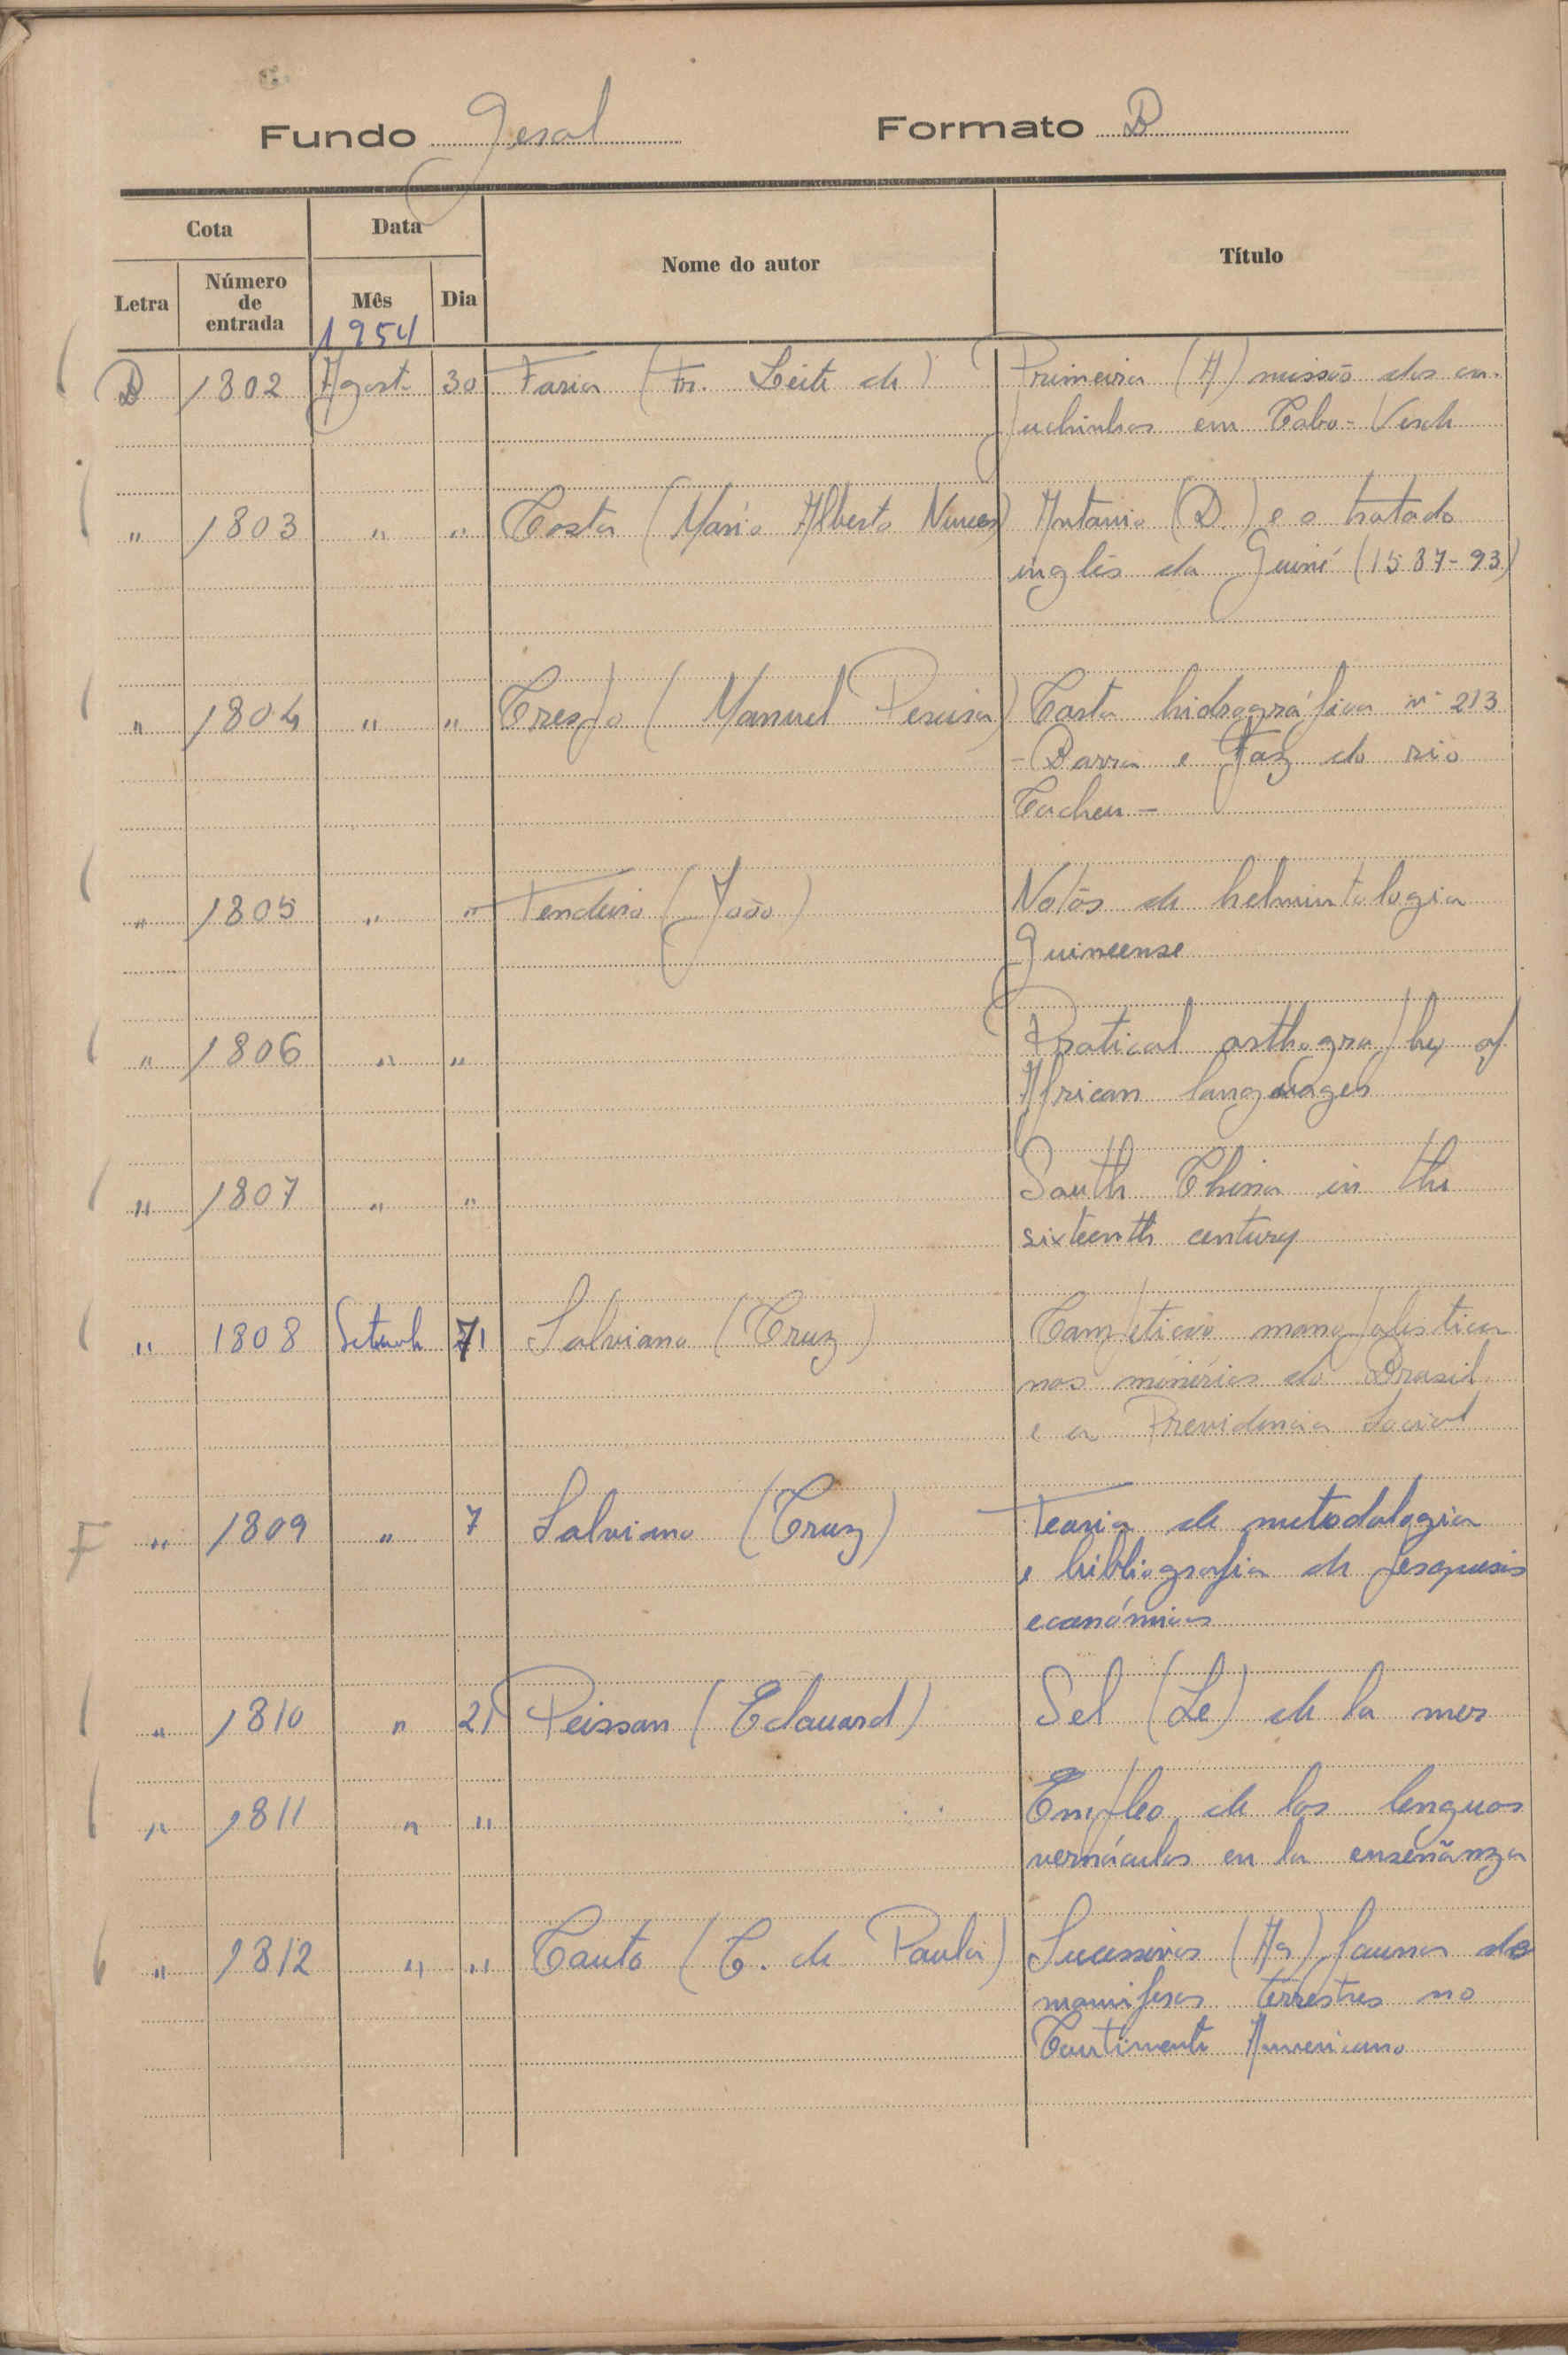 Fundo Geral Formato B
Cota Data Nome do autor Título
Letra Número de entrada Mês Dia
1954
B 1802 Agosto 30 Faria (Fr. Leite de) Primeira (A) missão dos ca-
puchinhos em Cabo-Verde
" 1803 " " Costa (Mário Alberto Nunes) António (D.) e o tratado
inglês da Guiné (1587-93)
" 1804 " " Crespo (Manuel Pereira) Carta hidrográfica nº 213
- Barra e Foz do rio
Cacheu -
" 1805 " " Tendeiro (João) Notas de helmintologia
Guineense
" 1806 " " Pratical orthography of
African languages
" 1807 " " South China in the
sixteenth century
" 1808 Setembro 7 Salviano (Cruz) Competição monopolistica
nos minérios do Brasil
e a Previdencia Social
F " 1809 " 7 Salviano (Cruz) Teoria de metodologia
e bibliografia de pesquisas
económicas
" 1810 " 21 Peisson (Edouard) Sel (Le) de la mer
" 1811 " " Empleo de las lenguas
vernáculas en la enseñanza
" 1812 " " Couto (C. de Paula) Sucessivas (As) faunas de
mamiferos terrestres no
Continente Americano